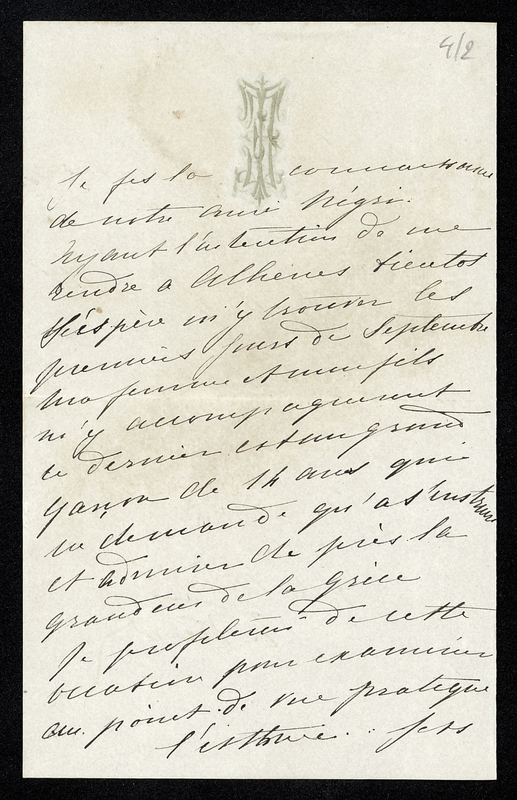 4/2
Je fis la connaissance
de notre ami Négri.
Ayant l'intention de me
rendre a Athènes bientot
J'éspère m'y trouver les
premiers jours de Septembre
ma femme et mon fils
m'y accompagneront
ce dernier est un grand
garson de 14 ans qui
ne demande qu'a s'instruire
et admirer de près la
grandeur de la Grèce
Je profiterai de cette
occasion pour examiner
au point de vue pratique
l'isthme